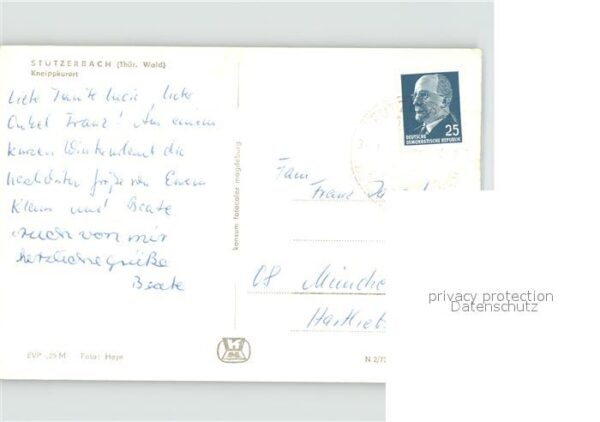 STÜTZERBACH (Thür. Wald)
Kneippkurort
Liebe Tante Lucie, lieber
Onkel Franz! Aus einem
kurzen Winterurlaub die
herzlichsten Grüße von Euren
Klaus und Beate
auch von mir
herzliche Grüße
Beate
EVP -,25 M Foto: Heye
konsum fotocolor magdeburg
25
DEUTSCHE
DEMOKRATISCHE REPUBLIK
Fam.
Franz
08 Münche
Hartlieb
N 2/7
privacy protection
Datenschutz